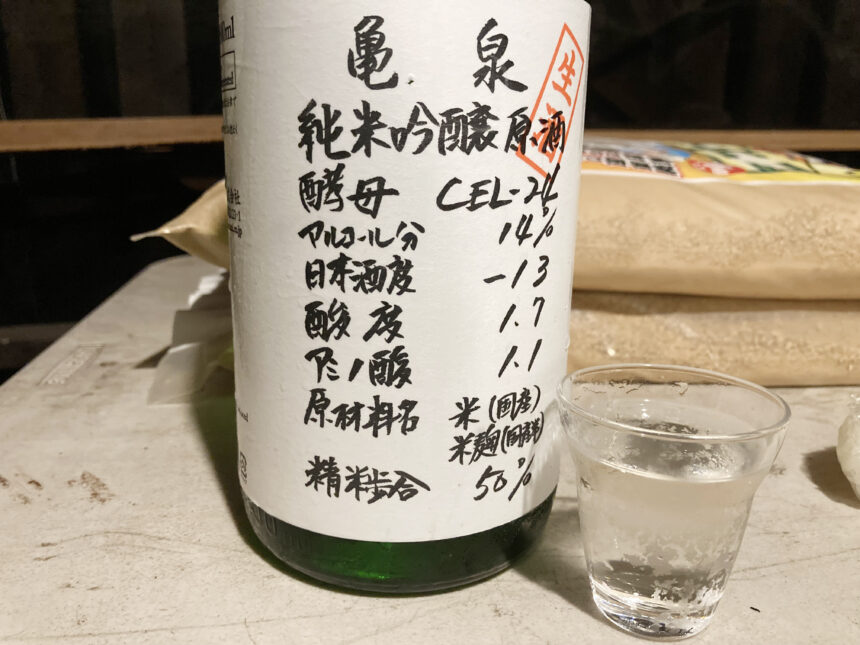 亀泉
純米吟醸原酒
酵母 CEL-24
アルコール分 14%
日本酒度 -13
酸度 1.7
アミノ酸 1.1
原材料名 米(国産)
米麹(国産米)
精米歩合 50%